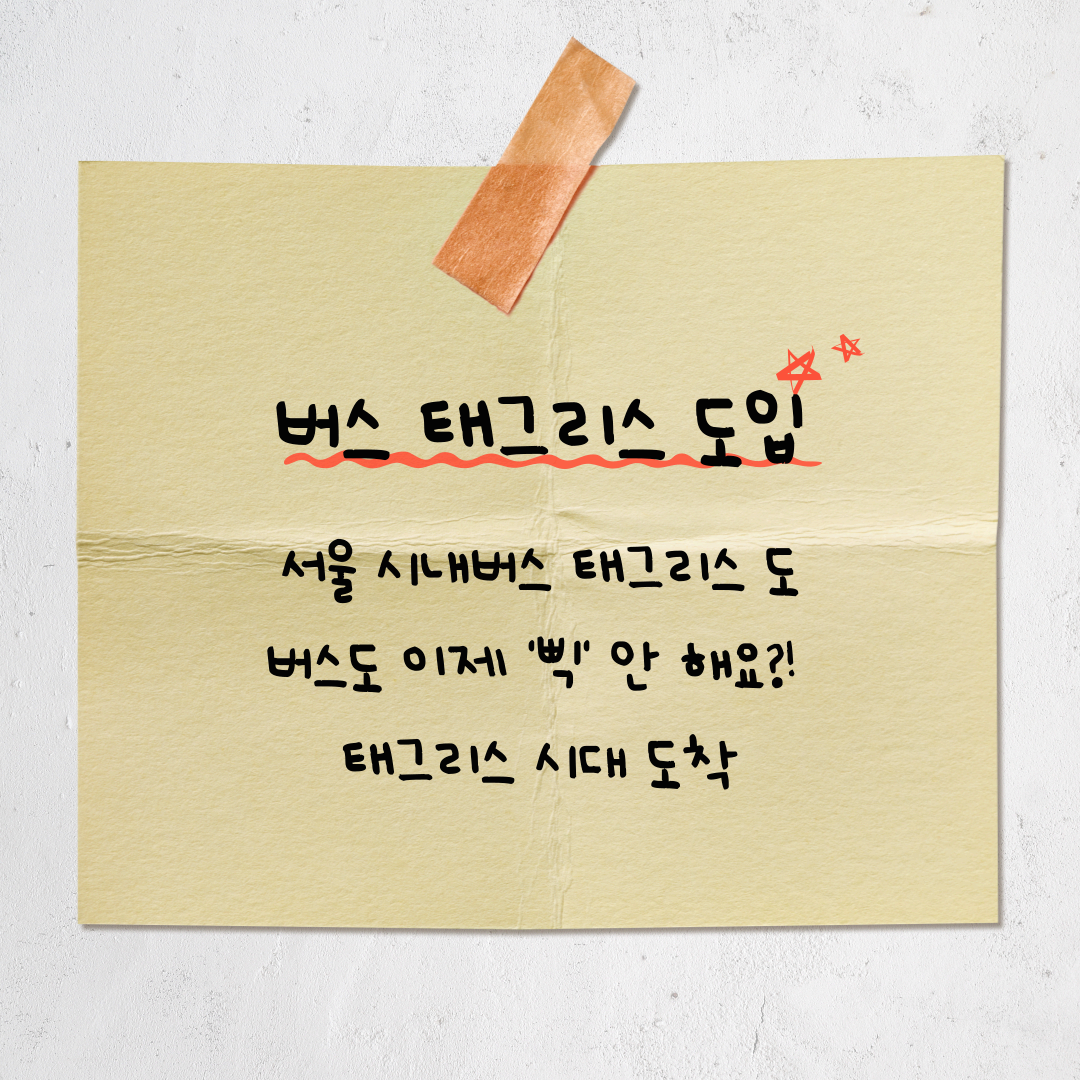 버스 태그리스 도입
서울 시내버스 태그리스 도
버스도 이제 '삑' 안 해요?!
태그리스 시대 도착